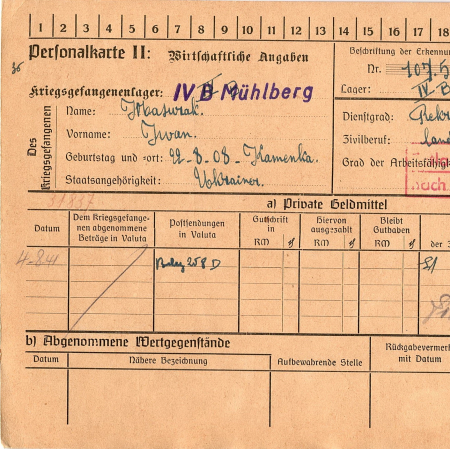 1 2 3 4 5 6 7 8 9 10 11 12 13 14 15 16 17 18
Personalkarte II: Wirtschaftliche Angaben
Beschriftung der Erkennun
Nr. 107.5
Kriegsgefangenenlager: IV B Mühlberg
Lager: IV B
Des Kriegsgefangenen
Name:
Dienstgrad: Rekr
Vorname: Iwan.
Zivilberuf: land
Geburtstag und -ort: 22-8-08-Kamenka.
Grad der Arbeitsfähigk
Staatsangehörigkeit: Ukrainer.
nach
31837
a) Private Geldmittel
Datum
Dem Kriegsgefange-
nen abgenommene
Beträge in Valuta
Postsendungen
in Valuta
Gutschrift
in
RM
Hiervon
ausgezahlt
RM
Bleibt
Guthaben
RM
der
4-8.41
208 D
b) Abgenommene Wertgegenstände
Datum
Nähere Bezeichnung
Aufbewahrende Stelle
Rückgabevermer
mit Datum